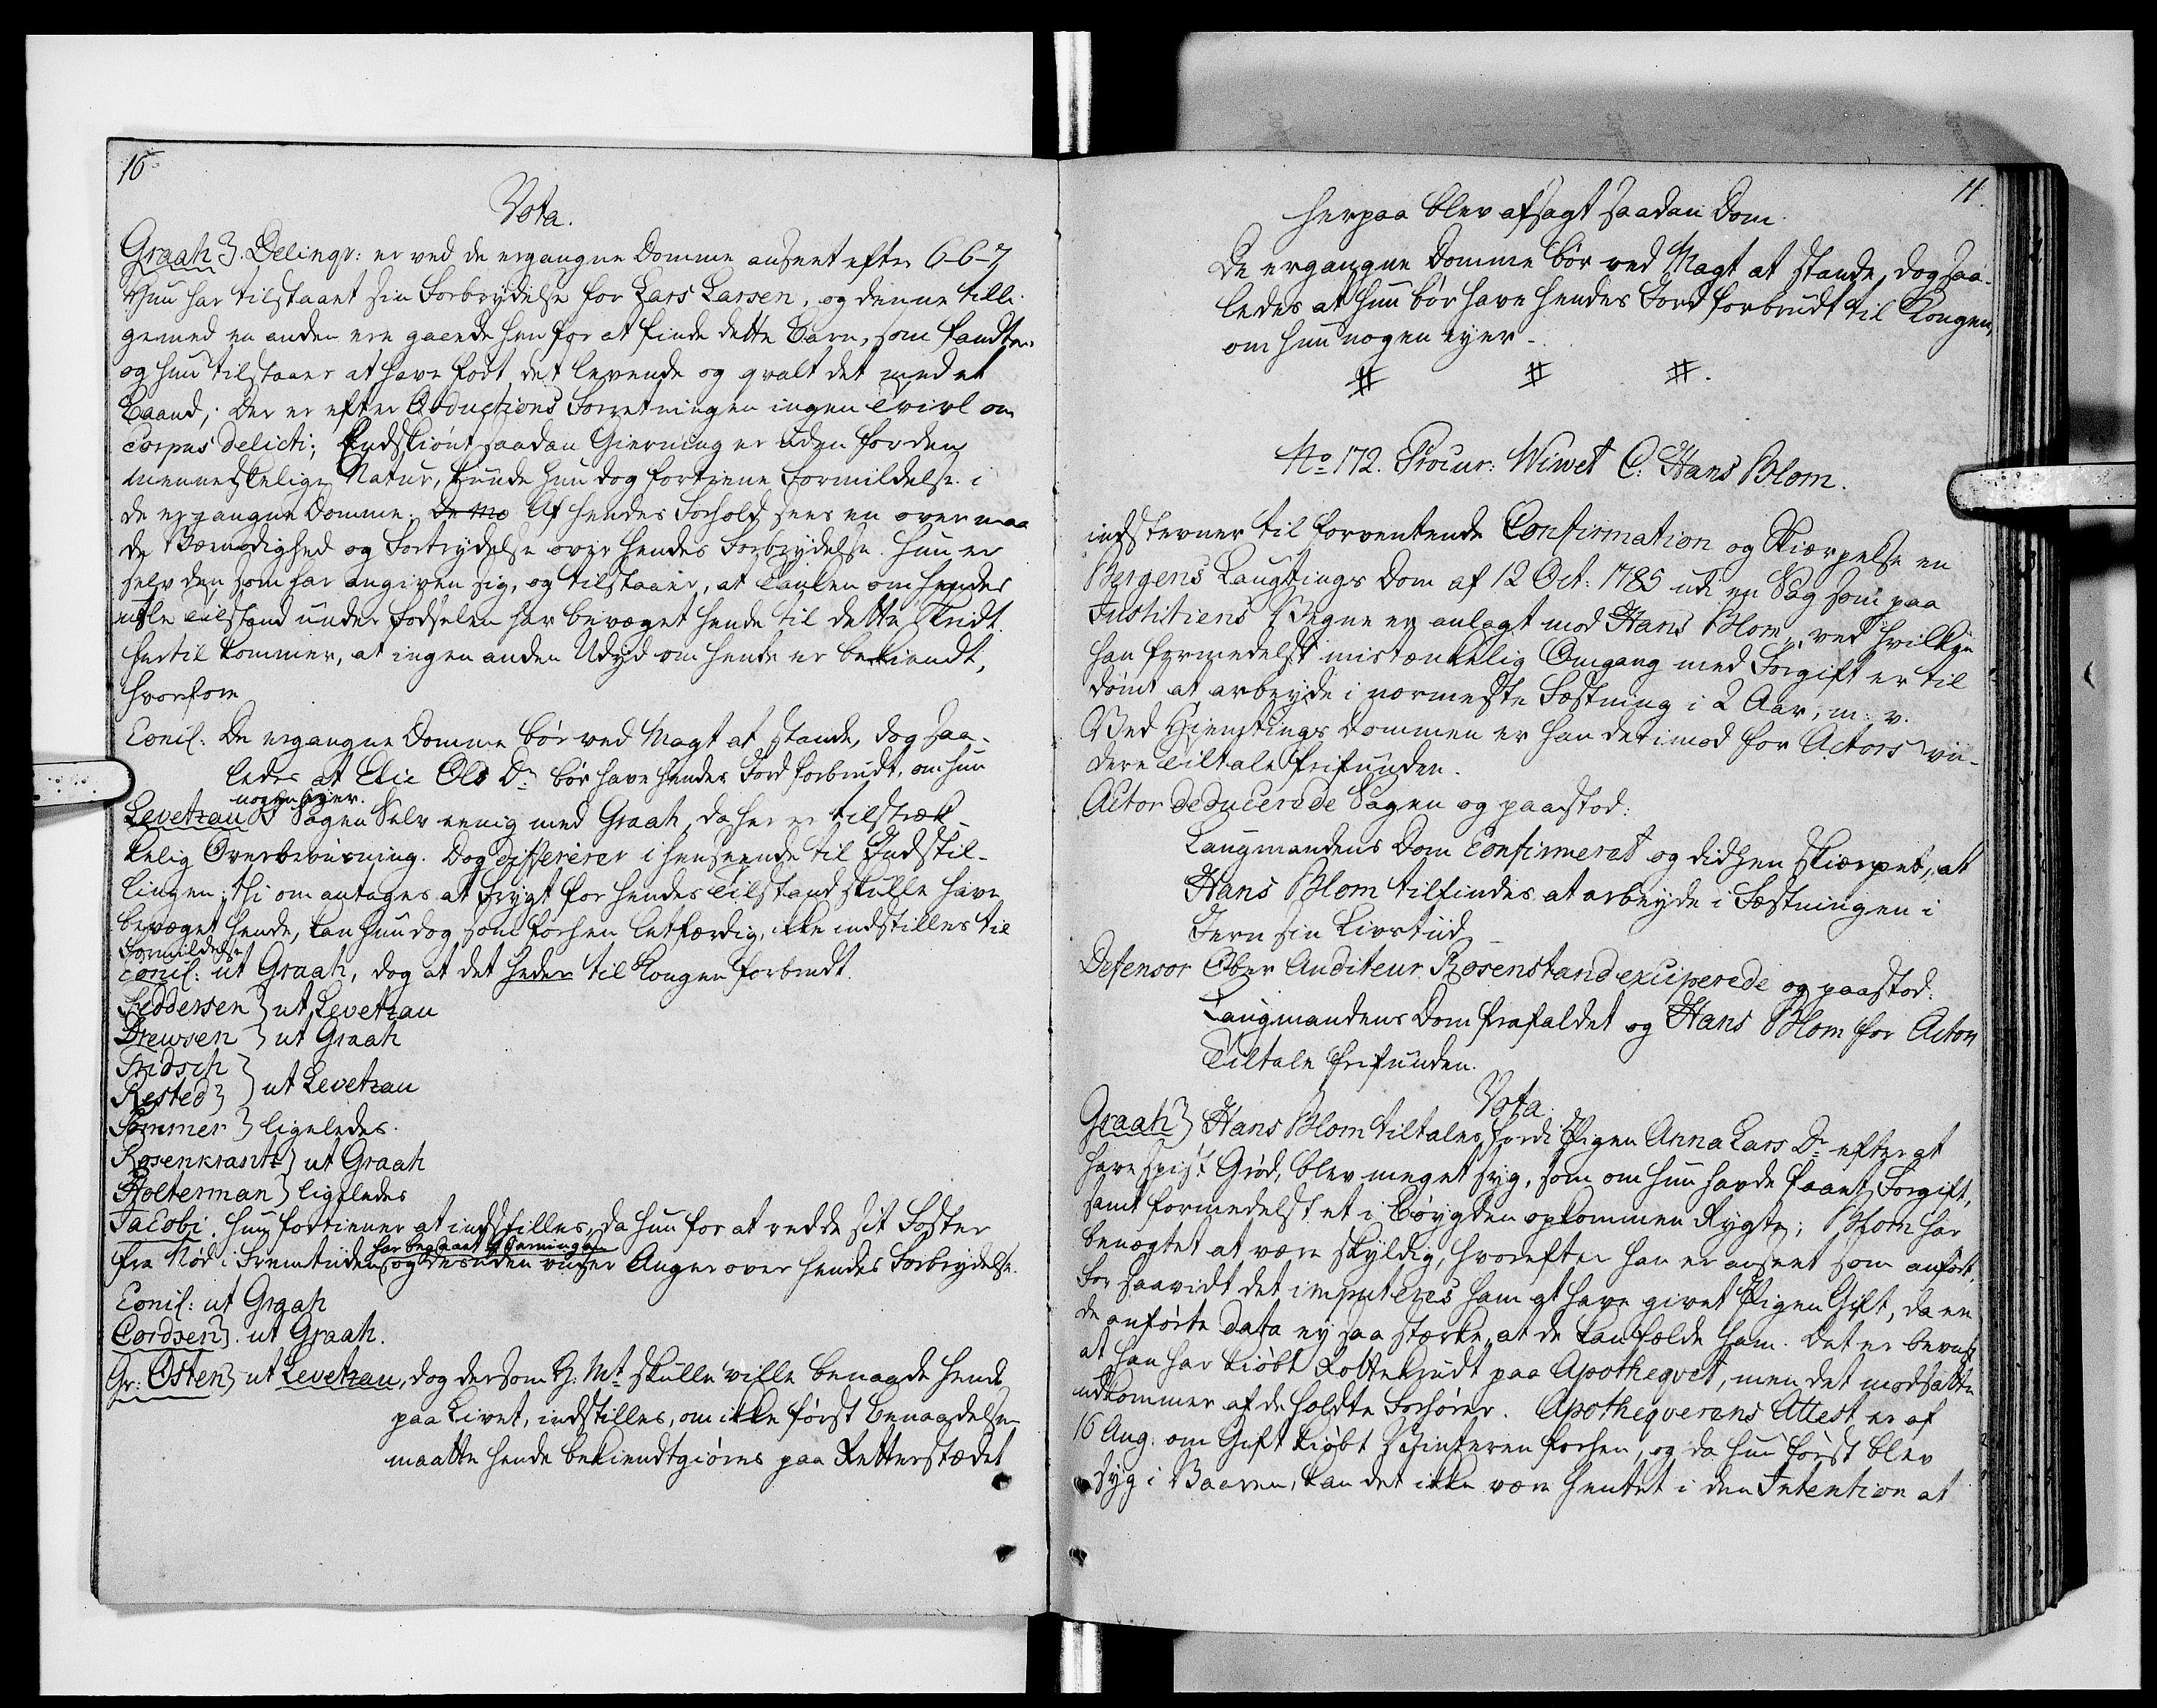 10
Vota.
Graah}. Delinqv: er ved de ergangne Domme anseet efter 6-6-7
Hun har tilstaaet sin Forbrydelse for Lars Larsen, og denne tilli-
gemed en anden ere gaaede hen for at finde dette Barn, som fandtes.
og hun tilstaaer at have født det levende og qvalt det med et
Baand; Der er efter Obductions Forretningen ingen Tvivl om
Corpus delicti; Endskiønt saadan Gierning er uden for den
menneskelige Natur, kunde hun dog fortiene Formildelse i
de ergangne Domme. Af hendes Forhold sees en overmaa
de Vemodighed og Fortrydelse over hendes Forbrydelse. Hun er
selv den som har angiven sig, og tilstaaer, at Tanken om hendes
usle Tilstand under Fødselen har bevæget hende til dette Skridt.
hertil kommer, at ingen anden Udyd om hende er bekiendt,
hvorfore
Concl: De ergangne Domme bør ved Magt at stande, dog saa-
ledes at Elie Ols Dr bør have hendes Jord forbrudt, om hun
nogen eyer.
Levetzau} I Sagen Selv eenig med Graah, da her er tilstræk-
kelig Overbeviisning. Dog differerer i henseende til Indstil-
lingen; thi om antages at Frygt for hendes Tilstand skulle have
bevæget hende, kan hun dog som forhen letfærdig, ikke indstilles til
Formildelse
Concl: ut Graah, dog at det heder til Kongen forbrudt.
Feddersen} ut Levetzau
Drewsen} ut Graah
Fridsch}
Rested} } ut Levetzau
Sommer} ligeledes.
Rosenkrantz} ut Graah
Holterman} ligeledes
Jacobi. hun fortiener at indstilles, da hun for at redde sit Foster
har begaaet Gierningen
fra Nød i Fremtiiden, og desuden viiser Anger over hendes Forbrydelse.
Concl: ut Graah
Cordsen}. ut Graah.
Gr: Osten} ut Levetzau, dog dersom H: Mt skulle ville benaade hende
paa Livet, indstilles, om ikke først Benaadelsen
maatte hende bekiendtgiøres paa Retterstædet
11.
Herpaa blev afsagt saadan Dom.
De ergangne Domme bør ved Magt at stande, dog saa-
ledes at hun bør have hendes Jord forbrudt til Kongen,
om hun nogen eyer.
# # #.
No 172. Procur: Wiwet C: Hans Blom.
indstevner til forventende Confirmation og Skiærpelse en
Bergens Laugtings Dom af 12 Oct: 1785 udi en Sag som paa
Justitiens Vegne er anlagt mod Hans Blom, ved hvilken
han formedelst mistænkelig Omgang med Forgift er til
dømt at arbeyde i nærmeste Fæstning i 2 Aar, m: v.
Ved Hiemtings Dommen er han derimod for Actors vii-
dere Tiltale frifunden.
Actor deducerede Sagen og paastod:
Laugmandens Dom Confirmeret og didhen skiærpet, at
Hans Blom tilfindes at arbeyde i Fæstningen i
Jern sin Livstiid
Defensor Ober Auditeur Rosenstand exciperede og paastod:
Laugmandens Dom frafaldet og Hans Blom for Actors
Tiltale frifunden.
Vota.
Graah} Hans Blom tiltales, fordi Pigen Anna Lars Dr efter at
have spist Grød, blev meget syg, som om hun havde faaet Forgift,
samt formedelst et i Bøygden opkommen Rygte; Blom har
benægtet at være skyldig, hvorefter han er anseet som anført.
For saavidt det imputeres ham at have givet Pigen Gift, da ere
de anførte data ey saa stærke, at de kan fælde ham. Det er beviist
at han har kiøbt Rottekrudt paa Apotheqvet, men det modsatte
udkommer af de holdte Forhører. Apotheqverens Attest er af
16 Aug. om Gift kiøbt Vinteren forhen, og da hun først blev
Syg i Vaaren, kan det ikke være hentet i den Intention at